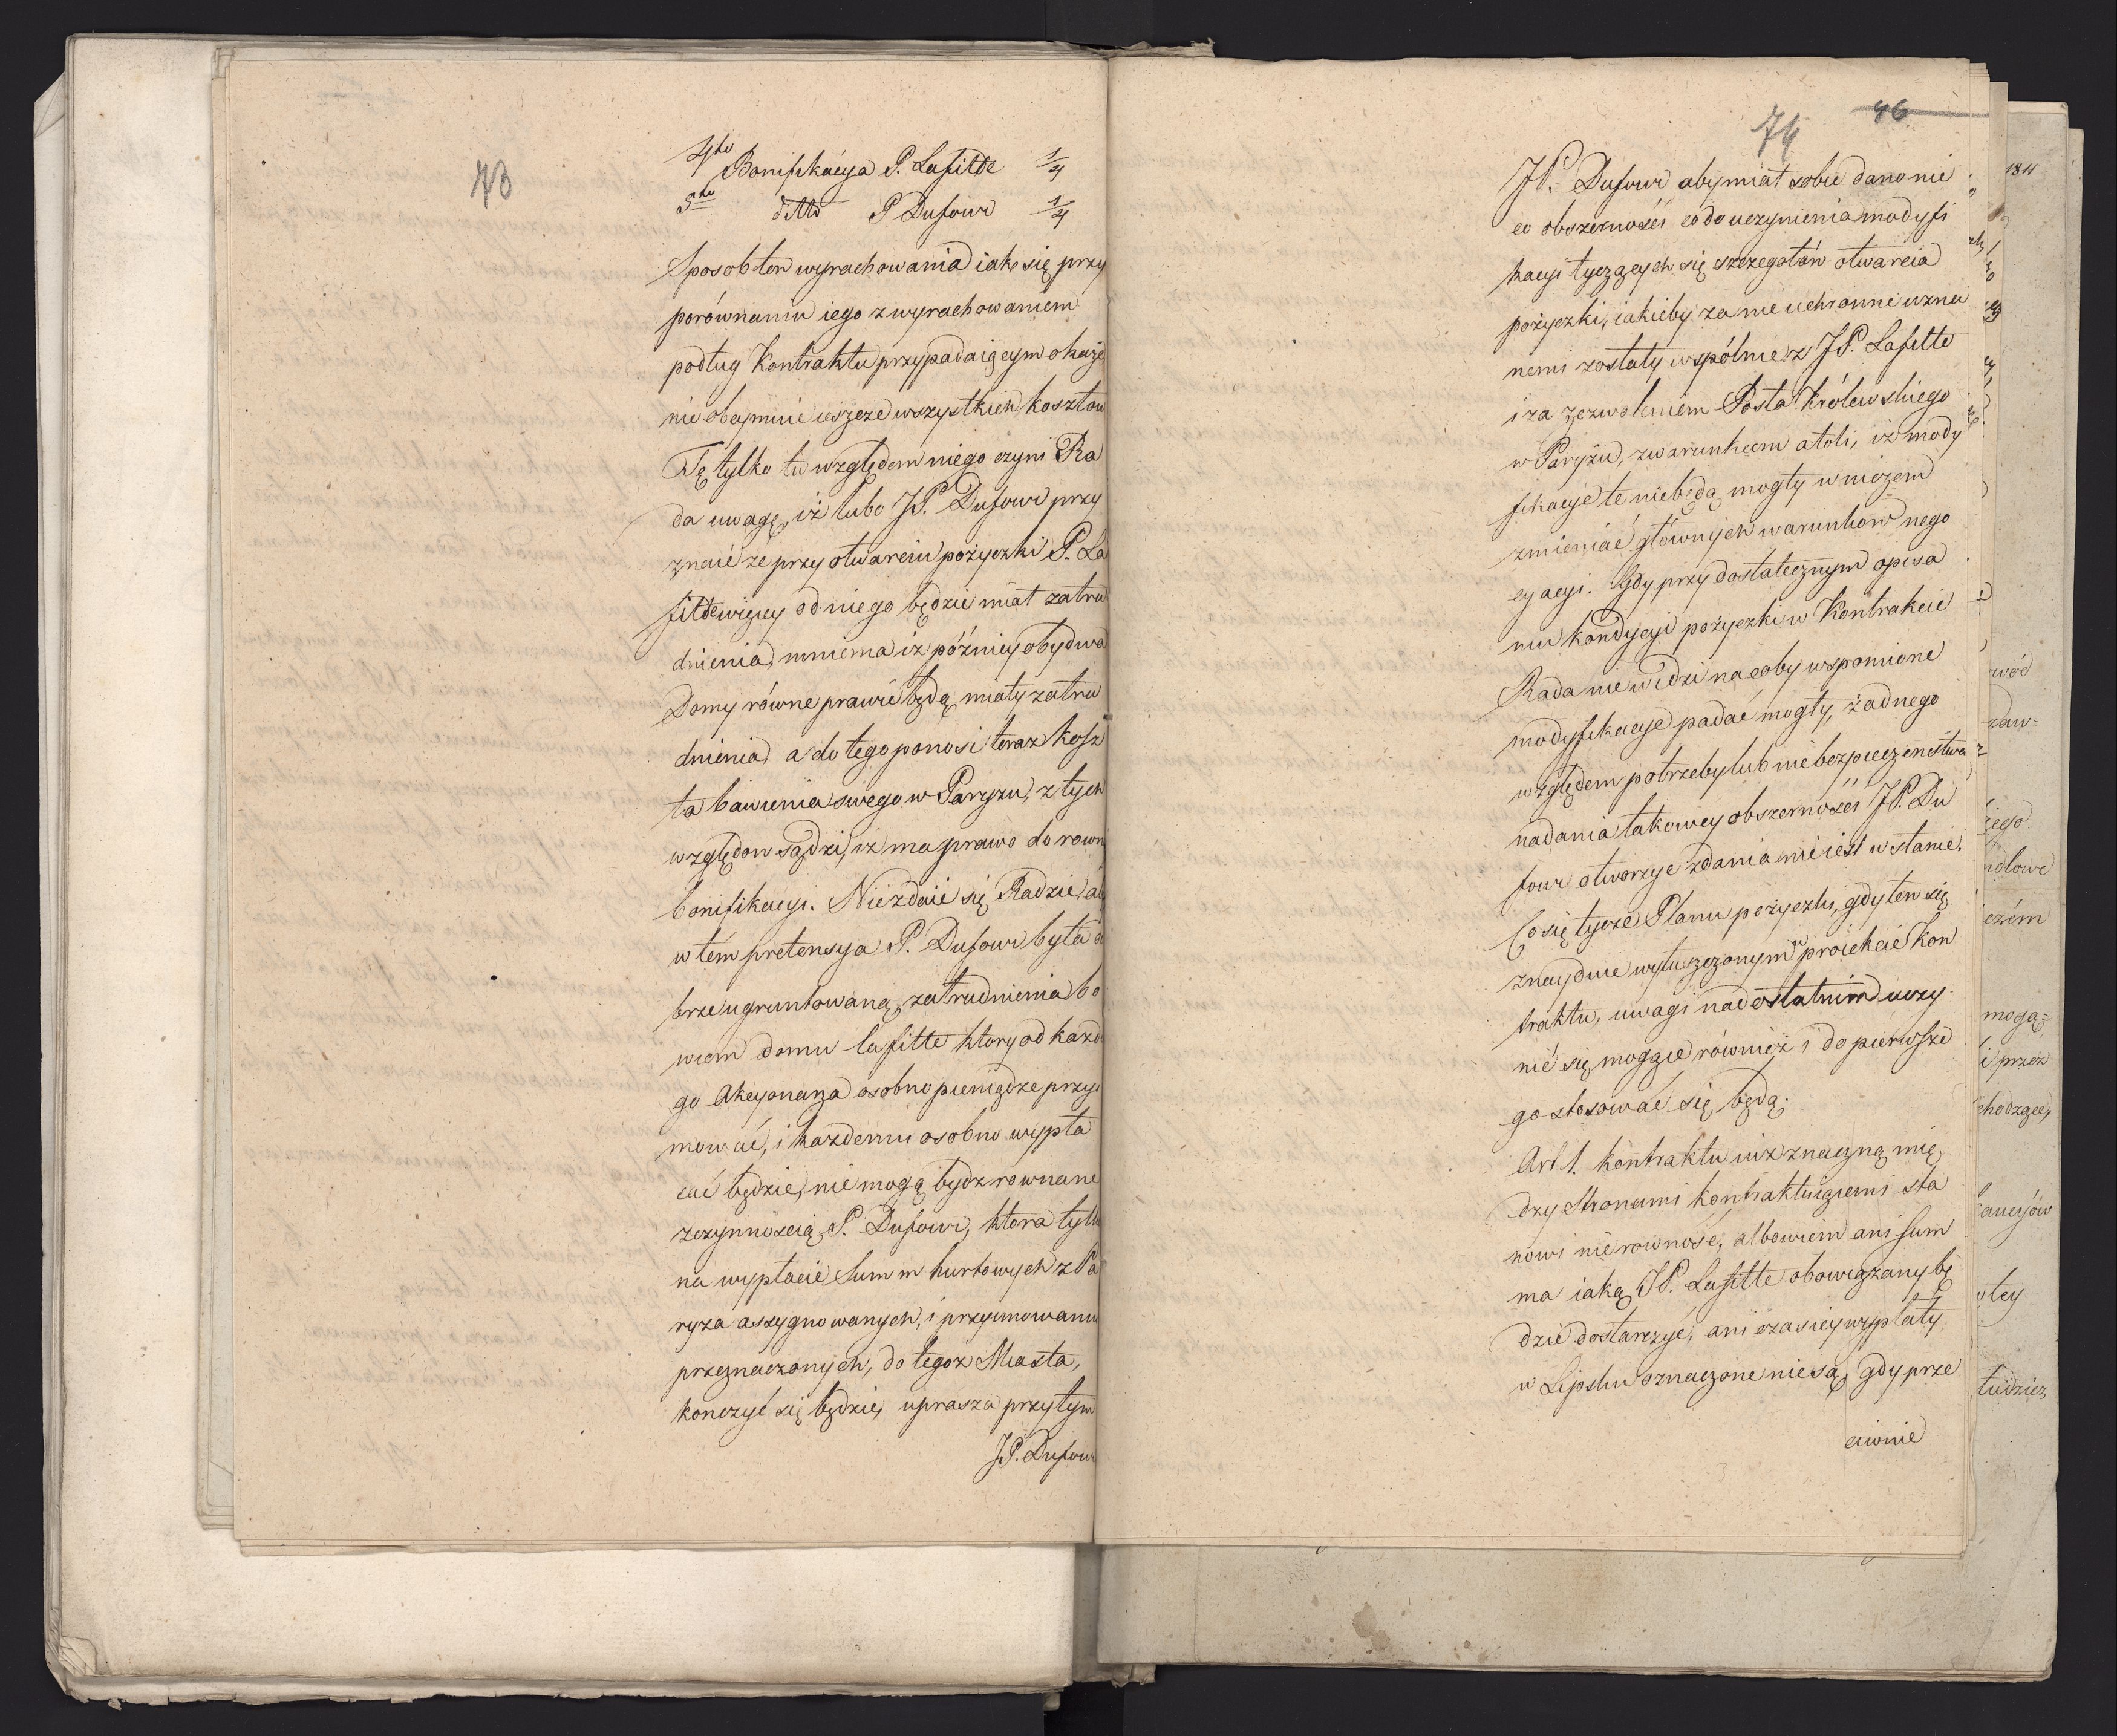 73
4to Bonifikacya P. Lafitte 1/4
5to ditto P Dufour 1/4
Sposob ten wyrachowania iak się przy
porównaniu iego z wyrachowaniem
podług Kontraktu przypadaiącym okaże
nie obeymuie ieszcze wszystkich kosztow
Tę tylko tu względem niego czyni Ra
da uwagę, iż lubo JP. Dufour przy
znaie ze przy otwarciu pożyczki P. La
fitte więcey od niego będzie miał zatru
dnienia, mniema iż późniey obydwa
Domy równe prawie będą miały zatru
dnienia a do tego ponosi teraz kosz
ta bawienia swego w Paryżu, z tych
względow sądzi, iż ma prawo do rown
bonifikacyi. Niezdaie się Radzie, a
w tém pretensya P. Dufour była do
brze ugruntowaną, zatrudnienia bo
wiem domu lafitte ktory od kazde
go Akcyonarza osobno pieniądze przyi
mować, i każdemu osobno wypła
cać będzie, nie mogą bydz rownane
z czynnością P. Dufour, ktora tylko
na wypłacie Summ hurtowych z Pa
ryża assygnowanych, i przyimowaniu
przeznaczonych, do tegoż Miasta,
konczyć się będzie, uprasza przytym
JP. Dufour
74 46
JP. Dufour aby miał sobie dano nie
co obszerności co do uczynienia modyfi
kacyi tyczących się szczegołów otwarcia
pożyczki, iakieby za nieuchronne uzna
nemi zostały wspólnie z JP. Lafitte
i za zezwoleniem Posła Królewskiego
w Paryżu, z warunkiem atoli, iż mody
fikacye te niebędą mogły w niczem
zmieniać głównych warunkow nego
cyacyi. Gdy przy dostatecznym opisa
niu kondycyi pożyczki w Kontrakcie
Rada nie widzi na coby wspomione
modyfikacye padać mogły, żadnego
względem potrzeby lub niebezpieczenstwa
nadania takowey obszerności JP. Du
four otworzyć zdania nie iest w stanie.
Co się tycze Planu pożyczki, gdy ten się
znayduie wytłuszczonym w proiekcie Kon
traktu, uwagi nad ostatnim uczy
nić się mogące również i do pierwsze
go stosować się będą.
Art 1. kontraktu iuż znaczną mię
dzy Stronami kontraktuiącemi sta
nowi nierowność, albowiem ani sum
ma iaką JP. Lafitte obowiązany bę
dzie dostarczyć, ani czas iey wypłaty
w Lipsku oznaczone nie są, gdy prze
ciwnie
1811
wód
zaw=
iego
ndlowe
iczém
mogą=
i przez
chodzące,
ancyów
oley
tudzież